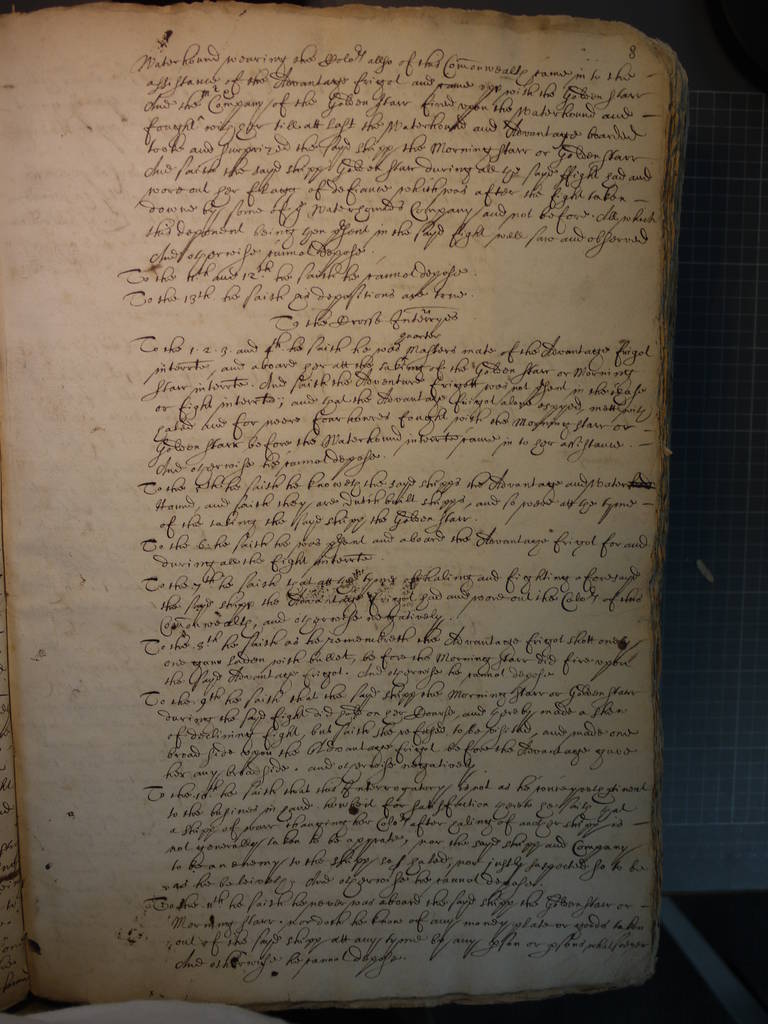 8
Waterhound wearing the Colo:rs allso of this Comonwealth came in to the
assistance of the Advantage frigot and came upp with the Golden Starr
And the Company of the Golden Starr fired upon the Waterhound and
fought with her till att last the Waterhound and Advantage boarded
tooke and surprized the sayd shipp the Morning Starr or Golden Starr
And saith the sayd shipp Golden Starr during all the sayd ffight had and
wore out her fflagg of defiance which was after the fight taken
downe by some of ye Waterhounds Company and not before. All which
this deponent being then psent in the sayd fight well saw and observed
And otherwise cannot depose.
To the 11th and 12th he saith he cannot depose.
To the 13th he saith his depositions are true.
To the Crosse Interryes
To the 1. 2. 3. and 4th he saith he was quarter Masters mate of the Advantage frigot
interrte, and aboard her att the taking of the Golden Starr or Morning
Starr interrte. And saith the Adventure frigott was not psent in the chase
or fight interrte; and that the Advantage frigot alone
and for neere four houres fought with the Morning Starr or
Golden Starr before the Waterhound interrte came in to her assistance.
And otherwise hee cannot depose.
To the 5th he saith he knoweth the sayd shipps the Advantage and Water
Hound, and saith they are dutch built shipps, and so were att the tyme
of the taking the sayd shipp the Golden Starr.
To the 6 he saith he was psent and aboard the Advantage frigot for and
during all the fight interrte.
To the 7th he saith that att the tyme of haling and fighting aforesayd
the sayd shipp the Advantage frigot had and wore out the Colo:rs of this
Comonwealth, and otherwise negatively.
To the 8th he saith as he remembreth the Advantage frigot shott onely
one gunn loaden with bullet, before the Morning Starr did fire upon
the sayd Advantage frigot. And otherwise he cannot depose
To the 9th he saith that the sayd shipp the Morning Starr or Golden Starr
during the sayd fight did hold on her Course, and thereby made a shew
of declining fight, but saith she refused to be visited, and made one
broad side upon the Advantage frigot before the Advantage gave
her any broadside. And otherwise negatively.
To the 10th he saith that this Interrogatory is not as he conceives ptinent
to the busines in hand. howbeit for satisfaction thereto he saith that
a shipp of warr changing her Colo:rs after haling of another shipp is
not generally taken to be a pyrate, nor the sayd shipp and Company
to be an enemy to the shipp so haled, nor justly suspected so to be
as he beleiveth. And otherwise he cannot depose.
To the 11th he saith he never was aboard the sayd shipp the Golden Starr or
Morning Starr. nor doth he know of any money plate or goods taken
out of the sayd shipp att any tyme by any pson or psons whatsoever
And otherwise he cannot depose.